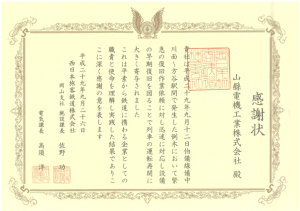 感謝状
山縣電機工業株式会社 殿
貴社は平成二十九年九月十二日伯備線備中
川面〜方谷駅間で発生した倒木において緊
急の復旧作業依頼に対し迅速に対応し設備
の早期復旧を図ることで列車の運転再開に
大きく寄与されました
これは平素から鉄道に携わる企業としての
職責と使命を理解し実践した結果でありこ
こに深く感謝の意を表します
平成二十九年九月二十六日
西日本旅客鉄道株式会社
岡山支社 施設課長 佐野 功
電気課長 高畑 洋